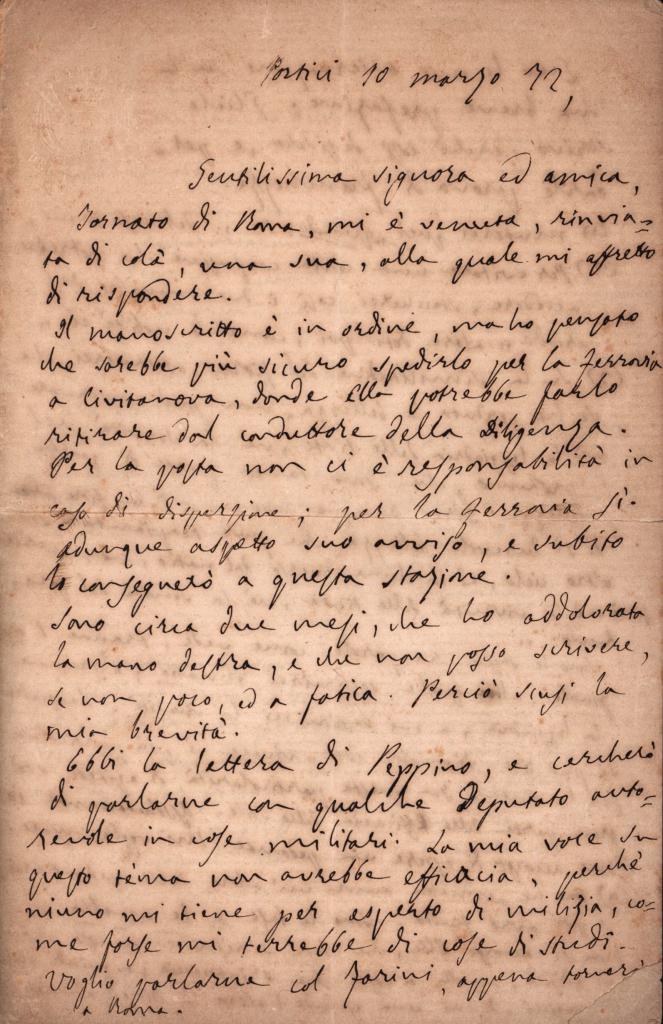 Portici 10 marzo 72,
Gentilissima signora ed amica,
Tornato di Roma, mi è venuta, rinvia=
ta di colà, una sua, alla quale mi affretto
di rispondere.
Il manoscritto è in ordine, ma ho pensato
che sarebbe più sicuro spedirlo per la ferrovia
a Civitanova, donde Ella potrebbe farlo
ritirare dal conduttore della Diligenza.
Per la posta non ci è responsabilità in
caso di dispersione; per la ferrovia sì.
Adunque aspetto suo avviso, e subito
lo consegnerò a questa stazione.
Sono circa due mesi, che ho addolorata
la mano destra, e che non posso scrivere,
se non poco, ed a fatica. Perciò scusi la
mia brevità.
Ebbi la lettera di Peppino, e cercherò
di parlarne con qualche Deputato auto=
revole in cose militari. La mia voce su
questo tema non avrebbe efficacia, perché
niuno mi tiene per esperto di milizia, co=
me forse mi terrebbe di cose di studi.
Voglio parlarne col Farini, appena tornerò
a Roma.